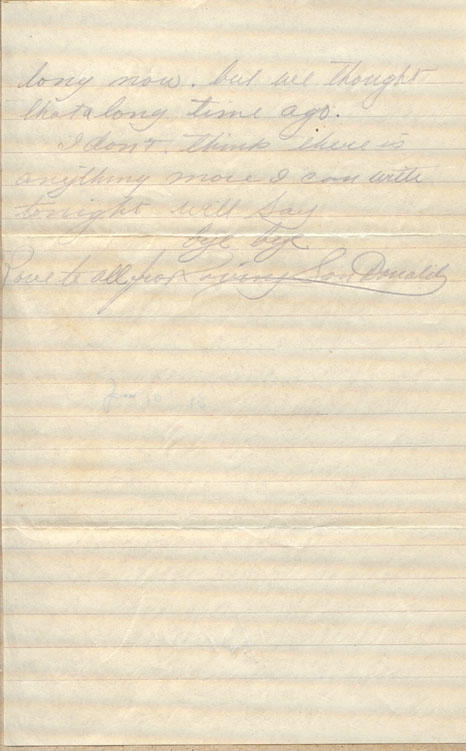 long now. but we thought
that along time ago.
I don't think there is
anything more I can write
tonight will say
bye bye
Love to all from Loving Son Donald